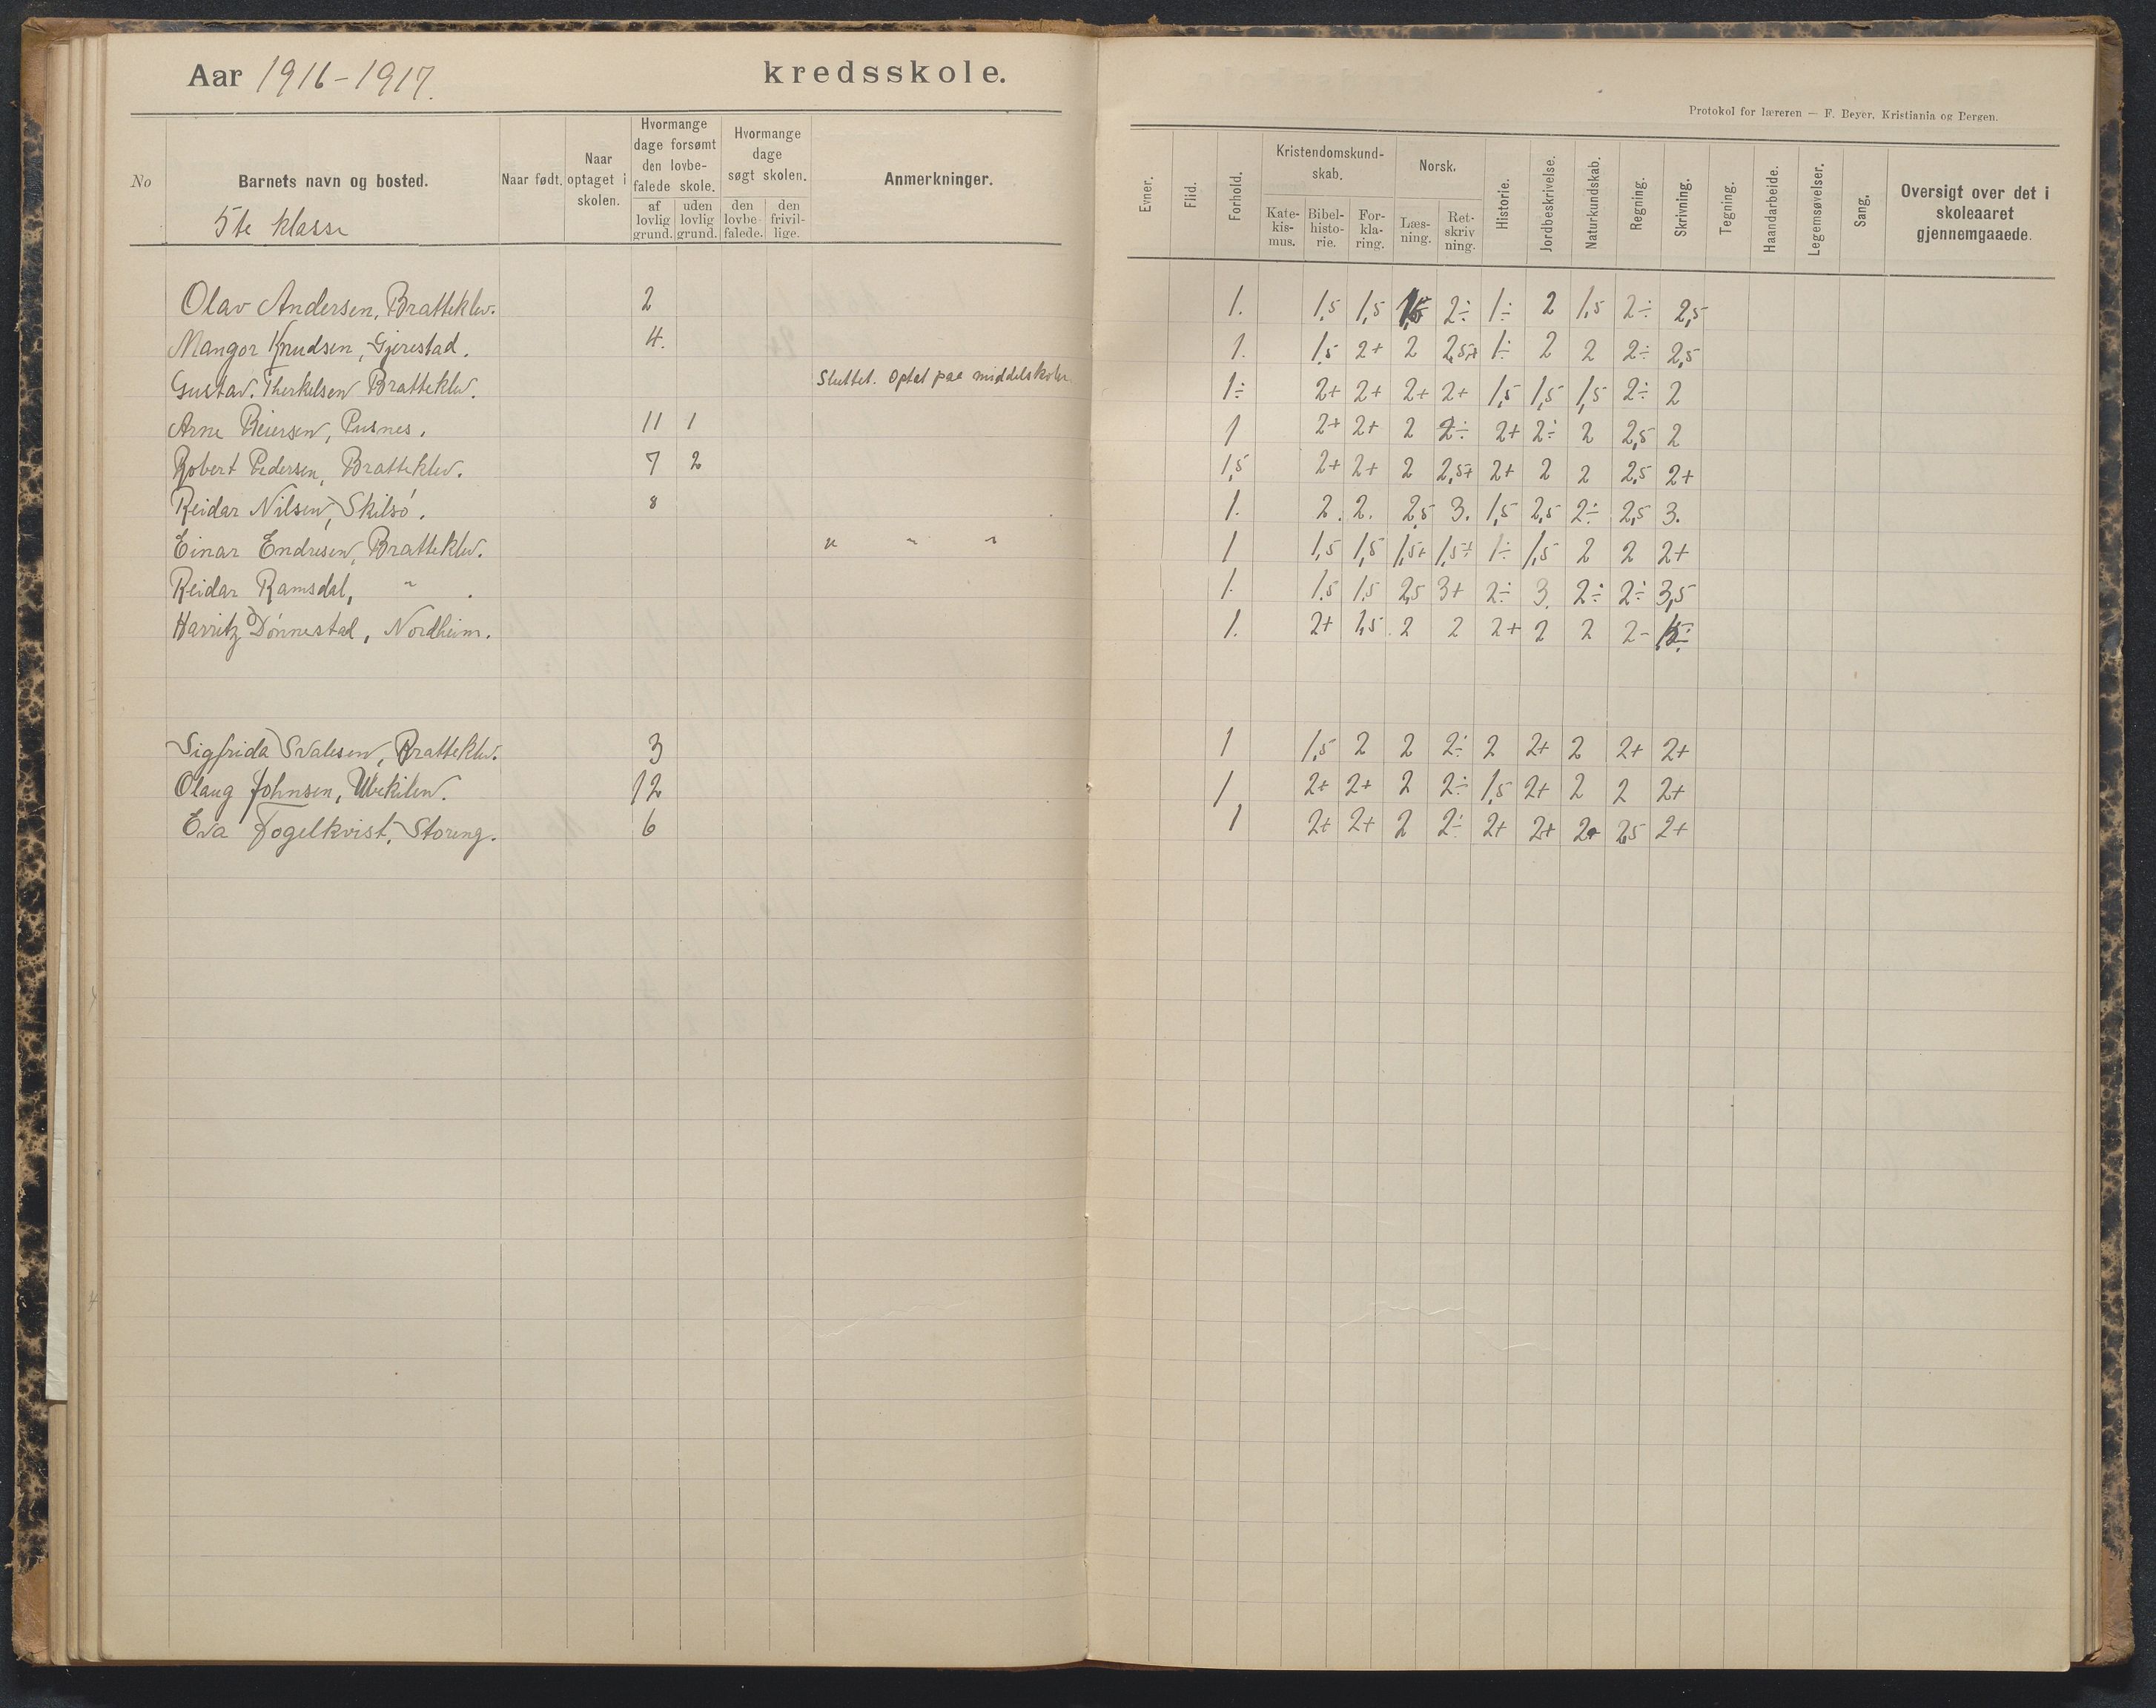 Aar 1916-1917.
kredsskole.
Protokol for læreren — F. Beyer, Kristiania og Bergen.
No
Barnets navn og bosted.
5te klasse
Naar født.
Naar optaget i skolen.
Hvormange dage forsømt den lovbefalede skole.
af lovlig grund.
uden lovlig grund.
Hvormange dage søgt skolen.
den lovbefalede.
den frivillige.
Anmerkninger.
Evner.
Flid.
Forhold.
Kristendomskundskab.
Katekismus.
Bibelhistorie.
Forklaring.
Norsk.
Læsning.
Retskriv ning.
Historie.
Jordbeskrivelse.
Naturkundskab.
Regning.
Skrivning.
Tegning.
Haandarbeide.
Legemsøvelser.
Sang.
Oversigt over det i skoleaaret gjennemgaaede.
Olav Andersen, Bratteklev. 2 1. 1,5 1,5 1,5 2÷ 1÷ 2 1,5 2÷ 2,5
Mangor Knudsen, Gjerestad. 4. 1. 1,5 2+ 2 2,5+ 1÷ 2 2 2÷ 2,5
Gustav. Therkelsen Bratteklev. Sluttet. Optat paa middelskolen 1÷ 2+ 2+ 2+ 2+ 1,5 1,5 1,5 2÷ 2
Arne Reiersen, Pusnes. 11 1 1 2+ 2+ 2 2÷ 2+ 2÷ 2 2,5 2
Robert Pedersen, Bratteklev. 7 2 1,5 2+ 2+ 2 2,5+ 2+ 2 2 2,5 2+
Reidar Nilsen, Skilsö. 8 1. 2. 2. 2,5 3. 1,5 2,5 2÷ 2,5 3.
Einar Endresen, Bratteklev. " " " 1 1,5 1,5 1,5+ 1,5÷ 1÷ 1,5 2 2 2+
Reidar Ramsdal, " . 1. 1,5 1,5 2,5 3+ 2÷ 3. 2÷ 2÷ 3,5
Harritz Dönnestad, Nordheim. 1. 2+ 1,5. 2 2 2+ 2 2 2- 1,5÷
Sigfrida Svalesen, Bratteklev. 3 1 1,5 2 2 2÷ 2 2+ 2 2+ 2+
Olaug Johnsen, Ubekilen. 12 1, 2+ 2+ 2 2÷ 1,5 2+ 2 2 2+
Eva Fogelkvist, Storeng. 6 1 2+ 2+ 2 2÷ 2+ 2+ 2+ 2,5 2+